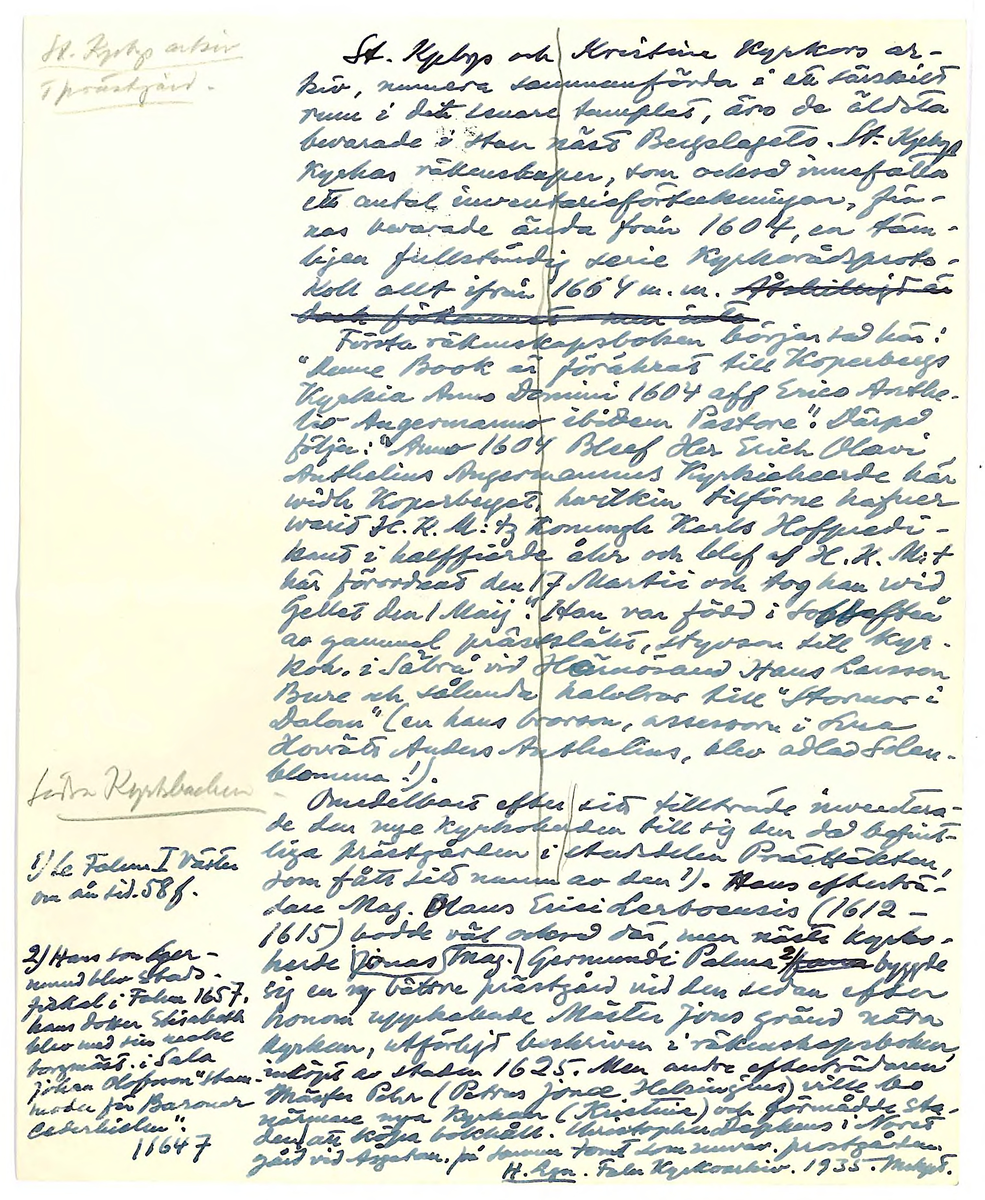 St. Kpbgs arkiv
i prästgård.
St. Kpbgs och Kristine Kyrkors ar-
kiv, numera sammanförda i ett särskilt
rum i det senare templet, äro de äldsta
bevarade i stan näst Bergslagets. St. Kpbgs
Kyrkas räkenskaper, som också innefatta
ett antal inventarieförteckningar, fin-
nas bevarade ända från 1604, en täm-
ligen fullständig serie Kyrkorådsproto-
koll allt ifrån 1664 m. m. Åtskilligt är
dock förkommet
Första räkenskapsboken börjar så här:
"Denne Book är förährat till Koperbergs
Kyrkia Anno Domini 1604 aff Erico Anthe-
lio Angermanno ibidem Pastore". Därpå
följer: "Anno 1604 Bleef Her Erich Olavi
Anthelius Angermannus Kyrkieheerde här
widh Koperberget, hwilkin tilförne hafuer
warit H. K. M:tz Konungh Karls Hofpredi-
kant i halffierde åhr och blef af H. K. M:t
här förordnat den 17 Martii och tog han wid
Gellet den 1 Maij." Han var född i
av gammal prästsläkt, styvson till Kyr-
koh. i Säbrå vid Härnösand Hans Larsson
Bure och sålunda halvbror till "Stormor i
Dalom" (en hans brorson, assessorn i Svea
Hovrätt Anders Anthelius, blev adlad Solen-
blomma!).
Södra Kyrkbacken
Omedelbart efter sitt tillträde inventera-
de den nye Kyrkoherden till sig den då befint-
liga prästgården i stadsdelen Prästtäkten,
som fått sitt namn av den 1). Hans efterträ-
dare Mag. Olaus Erici Lerboensis (1612 –
1615) bodde väl också där, men näste Kyrko-
herde Jonas Mag. Germundi Palma 2) byggde
sig en ny bättre prästgård vid den sedan efter
honom uppkallade Mäster Jöns gränd nära
Kyrkan, utförligt beskriven i räkenskapsboken,
inköpt av staden 1625. Men andre efterträdaren
Mäster Pehr (Petrus Jonæ Helsingius) ville bo
närmare nya Kyrkan (Kristine) och förmådde sta-
den att köpa bokhåll. Christopher i Noret
gård vid Åsgatan, på samma tomt som nuvar. prostgården.
H. Agn. Falu Kyrkoarkiv. 1935. Mskpt.
1) Se Falun I Väster
om ån sid. 58 f.
2) Hans son Ger-
mund blev stads-
fiskal i Falun 1657.
hans dotter Elisabeth
blev med sin make
borgmäst. i Sala
Johan Olofsson "stam-
moder för Baroner
Cederhielm".
11647